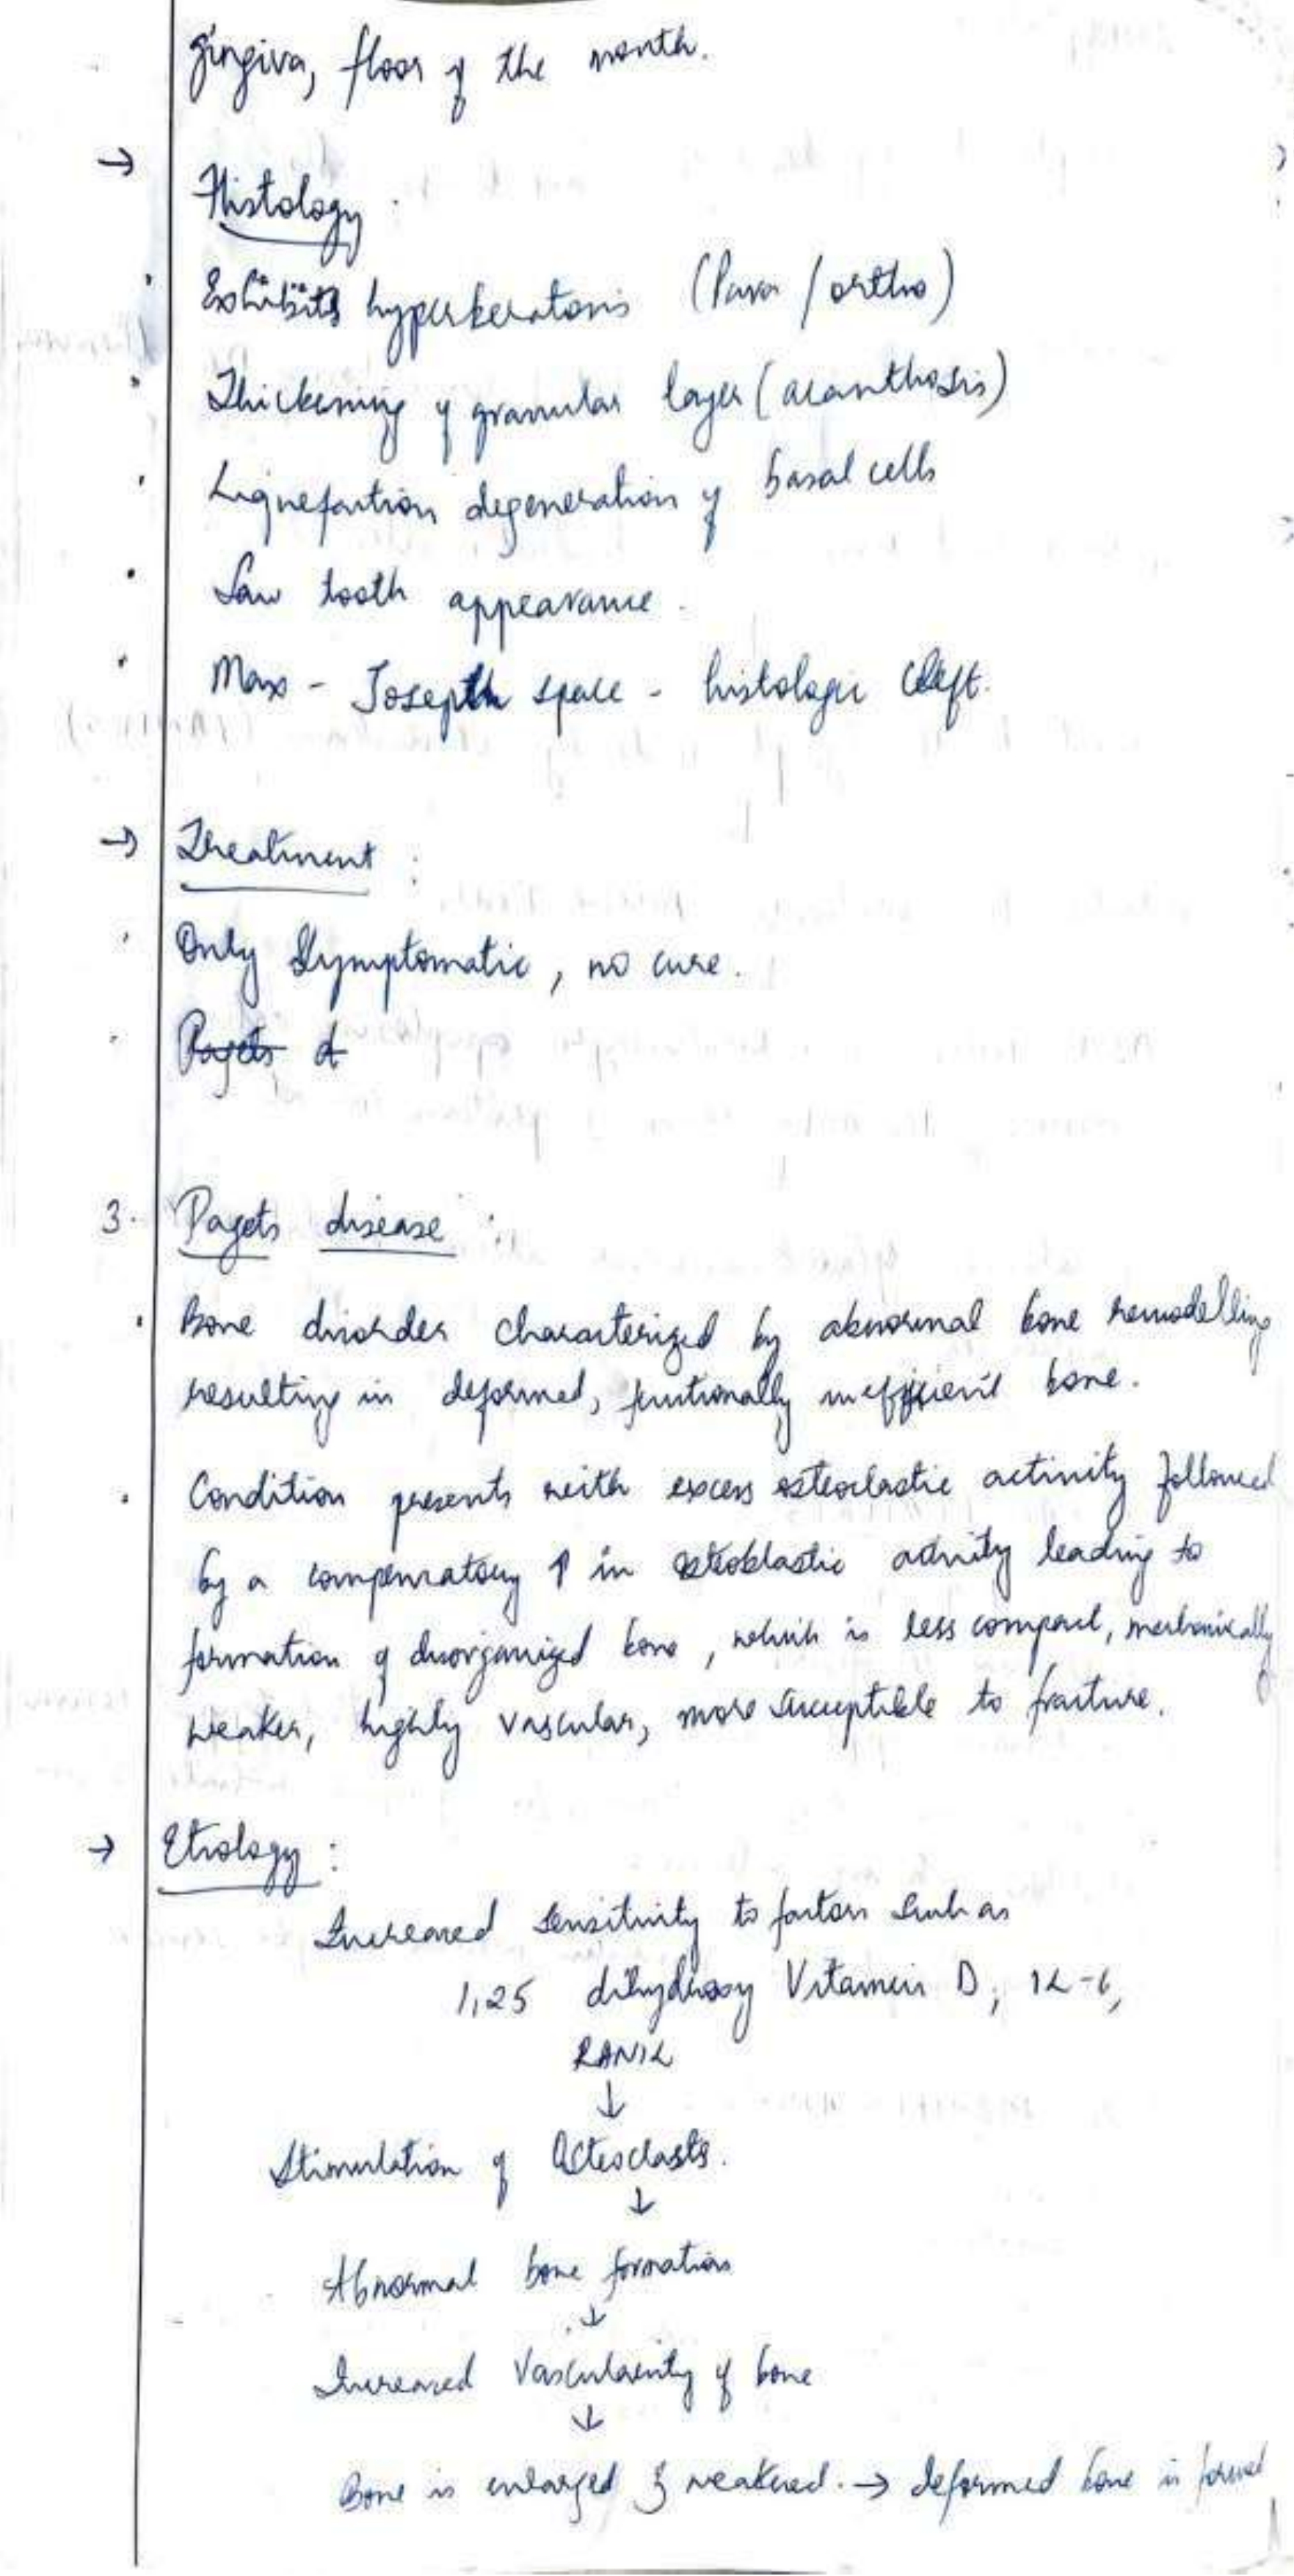 gingiva, floor of the mouth.
→ Histology :
• Exhibits hyperkeratosis (Para / ortho)
• Thickening of granular layer (acanthosis)
• Liquefaction degeneration of basal cells
• Saw tooth appearance.
• Max - Joseph space - histologic cleft.
→ Treatment :
• Only Symptomatic, no cure.
• Pagets d
3. Pagets disease :
• Bone disorder characterized by abnormal bone remodelling
resulting in deformed, functionally inefficient bone.
• Condition presents with excess osteoclastic activity followed
by a compensatory ↑ in osteoblastic activity leading to
formation of disorganized bone, which is less compact, mechanically
weaker, highly vascular, more succeptible to fracture.
→ Etiology :
Increased sensitivity to factors such as
1,25 dihydroxy Vitamin D, IL-6,
RANKL
↓
Stimulation of Osteoclasts.
↓
Abnormal bone formation
↓
Increased Vascularity of bone
↓
Bone is enlarged & weakened. → deformed bone is formed